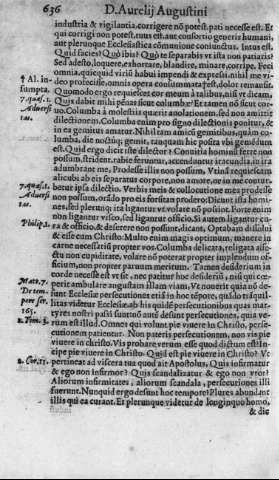 636 D. Aurelij Augustini
industria & vigilantia. corrigere nō potest. pati necesse est. Et
qui corrigi non potest, tuus est, aut consortio generis humani,
aut plerunque Ecclesiastica cōmunione coniunctus. Intus est.
Quid facies? Quò ibis? Quò te separabis vt ista non patiaris?
Sed adesto, loquere, exhortare, blandire, minare, corripe. Feci
omnia, quicquid virium habui impendi & expressi, nihil me vi-
deo profecisse, omnis opera consummata est, dolor remansit.
Quomodo ergo requiescet cor meum à talibus, nisi vt dicam,
Quis dabit mihi pēnas sicut columbæ? Et tamen nō sicut cor-
uo. Columba à molestiis querit auolationem, sed non amittit
dilectionem. Columba enim pro signo dilectionis ponitur, &
in ea gemitus amatur. Nihil tam amicū gemitibus, quàm co-
lumba, die noctuq; gemit, tanquam hic posita vbi gemēdum
est. Quid ergo dicit iste dilector? Conuitia hominū ferre non
possum, strident, rabie feruntur, accenduntur iracundia, in ira
adumbrant me, Prodesse illis non possum. Vtinā requiescam
alicubi ab eis separatus corpore, non amore, ne in me contur-
betur ipsa dilectio. Verbis meis & collocutione mea prodesse
non possum, orādo pro eis forsitan prodero: Dicunt ista homi-
nes, sed plerunq; ita ligantur vt volare nō possint. Forte enim
non ligantur visco, sed ligantur officio. Si autem ligantur cu-
ra & officio, & deserere non possunt, dicant, Optabam dissolui
& esse cum Christo: Multo enim magis optimum, manere in
carne necessariū propter vos. Columba deligata, religata affe-
ctu non cupiditate, volare nō poterat propter implendum of-
ficium, non propter paruum meritum. Tamen desiderium in
corde necesse est vt sit, nec patitur hoc desideriū, nisi qui cœ-
perit ambulare angustam illam viam, Vt nouerit quia nō de-
sunt Ecclesiæ persecutiones etiā in hoc tēpore, quādo trāquil-
litas videtur Ecclesiæ, ab his quidē persecutionibus quas mar-
tyres nostri passi sunt: nō autē desunt persecutiones, quia ve-
rum est illud. Omnes qui volunt pie viuere in Christo, perse-
cutionem patientur. Non pateris persecutionem, non vis pie
viuere in Christo. Vis probare verum esse quod dictum est? In-
cipe pie viuere in Christo. Quid est pie viuere in Christo? Vt
pertineat ad viscera tua quod ait Apostolus, Quis infirmatur
& ego non infirmor? Quis scandalizatur & ego non vror?
Aliorum infirmitates, aliorum scandala, persecutiones illi
fuerunt. Nunquid ergo desunt hoc tempore? Plures abundant
illis qui ea curant. Et plerunque videtur de longinquo homo,
& die
† Al. in-
sumpta.
Aduersi
tas.
Aduersi
tas.
Philip. 1.
Mat. 7.
De tem-
pore ser.
165.
2. Tim. 3.
2. Cor. 11.